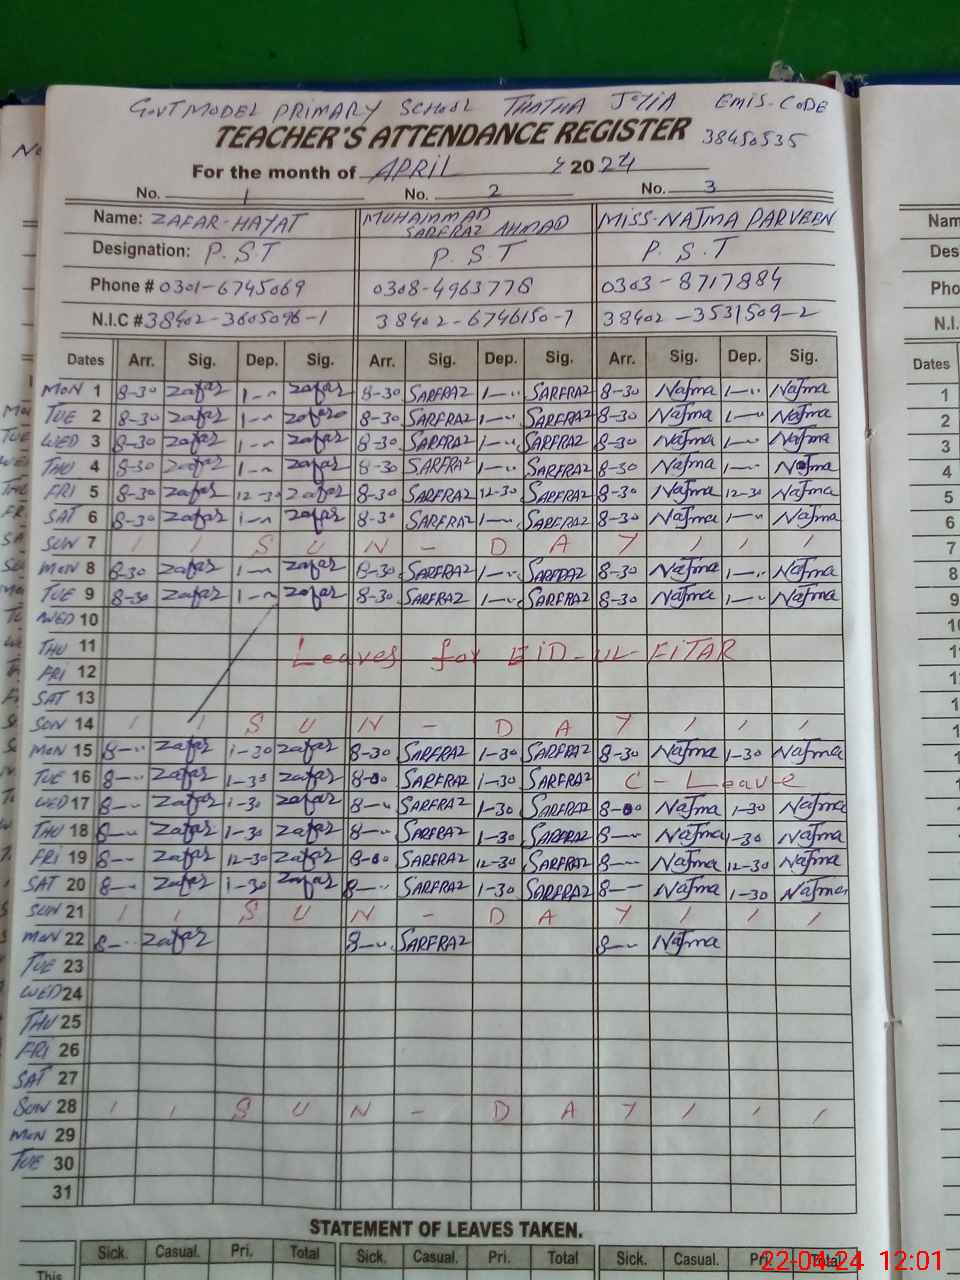 GOVT MODEL PRIMARY SCHOOL THATHA JOYIA EMIS-CODE
TEACHER'S ATTENDANCE REGISTER 38450535
For the month of APRIL 2024
No. 1 No. 2 No. 3
Name: ZAFAR-HAYAT MUHAMMAD SARFRAZ AHMAD MISS-NAJMA PARVEEN
Designation: P.S.T P.S.T P.S.T
Phone # 0301-6745069 0308-4963778 0303-8717884
N.I.C # 38402-3605096-1 38402-6746150-7 38402-3531509-2
Dates Arr. Sig. Dep. Sig. Arr. Sig. Dep. Sig. Arr. Sig. Dep. Sig.
MON 1 8-30 Zafar 1-" Zafar 8-30 SARFRAZ 1-" SARFRAZ 8-30 Najma 1-" Najma
TUE 2 8-30 Zafar 1-" Zafar 8-30 SARFRAZ 1-" SARFRAZ 8-30 Najma 1-" Najma
WED 3 8-30 Zafar 1-" Zafar 8-30 SARFRAZ 1-" SARFRAZ 8-30 Najma 1-" Najma
THU 4 8-30 Zafar 1-" Zafar 8-30 SARFRAZ 1-" SARFRAZ 8-30 Najma 1-" Najma
FRI 5 8-30 Zafar 12-30 Zafar 8-30 SARFRAZ 12-30 SARFRAZ 8-30 Najma 12-30 Najma
SAT 6 8-30 Zafar 1-" Zafar 8-30 SARFRAZ 1-" SARFRAZ 8-30 Najma 1-" Najma
SUN 7 / / S U N - D A Y / / /
MON 8 8-30 Zafar 1-" Zafar 8-30 SARFRAZ 1-" SARFRAZ 8-30 Najma 1-" Najma
TUE 9 8-30 Zafar 1-" Zafar 8-30 SARFRAZ 1-" SARFRAZ 8-30 Najma 1-" Najma
WED 10
THU 11 Leaves for EID-UL-FITAR
FRI 12
SAT 13
SUN 14 / / S U N - D A Y / / /
MON 15 8-" Zafar 1-30 Zafar 8-30 SARFRAZ 1-30 SARFRAZ 8-30 Najma 1-30 Najma
TUE 16 8-" Zafar 1-30 Zafar 8-30 SARFRAZ 1-30 SARFRAZ C-Leave
WED 17 8-" Zafar 1-30 Zafar 8-" SARFRAZ 1-30 SARFRAZ 8-00 Najma 1-30 Najma
THU 18 8-" Zafar 1-30 Zafar 8-" SARFRAZ 1-30 SARFRAZ 8-" Najma 1-30 Najma
FRI 19 8-" Zafar 12-30 Zafar 8-00 SARFRAZ 12-30 SARFRAZ 8-" Najma 12-30 Najma
SAT 20 8-" Zafar 1-30 Zafar 8-" SARFRAZ 1-30 SARFRAZ 8-" Najma 1-30 Najma
SUN 21 / / S U N - D A Y / / /
MON 22 8-" Zafar 8-" SARFRAZ 8-" Najma
TUE 23
WED 24
THU 25
FRI 26
SAT 27
SUN 28 / / S U N - D A Y / / /
MON 29
TUE 30
31
STATEMENT OF LEAVES TAKEN.
Sick. Casual. Pri. Total Sick. Casual. Pri. Total Sick. Casual. Pri. Total
This
22-04-24 12:01
Dates
1
2
3
4
5
6
7
8
9